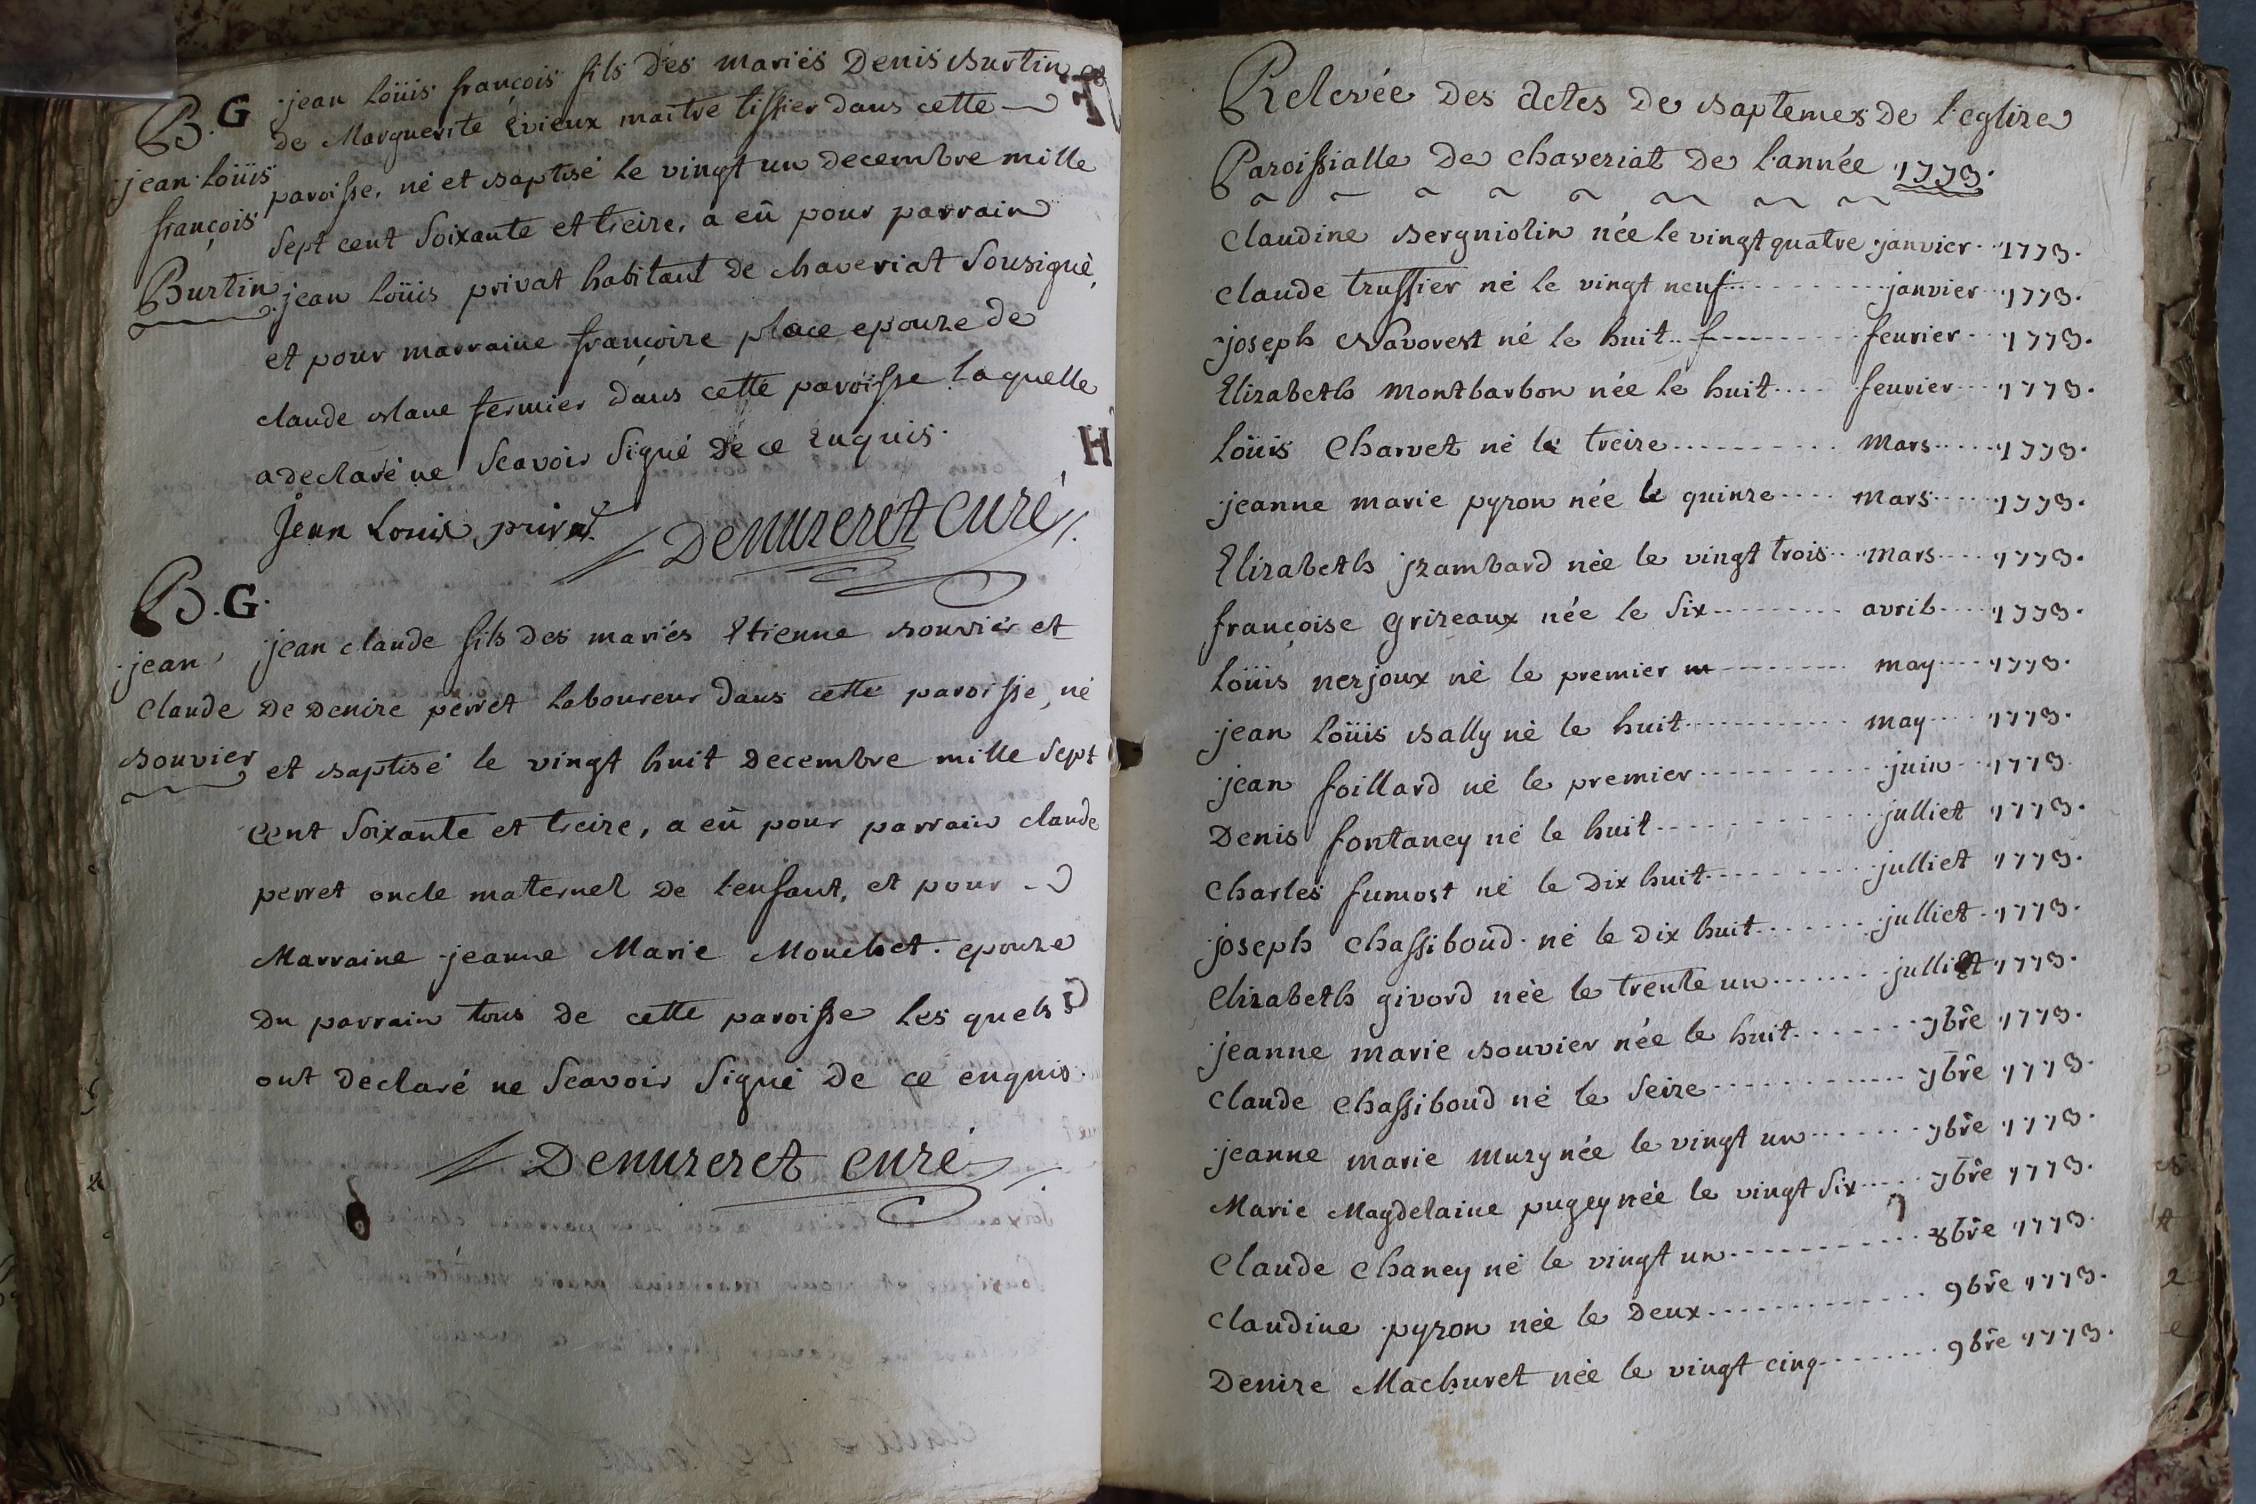 B. G
jean Loüis
françois
Burtin
jean Loüis françois fils des mariés Denis Burtin et
de Marguerite Evieux maitre tissier dans cette
paroisse, né et Baptisé le vingt un decembre mille
sept cent soixante et treize, a eü pour parrain
jean Loüis privat habitant de chaveriat sousigné,
et pour marraine françoize place epouze de
claude Blanc fermier dans cette paroisse laquelle
a declaré ne scavoir signé de ce enquis.
Jean Louis privat
Denuzeret curé
B. G.
jean
claude
Bouvier
jean claude fils des mariés Etienne Bouvier et
de Denize perret laboureur dans cette paroisse, né
et Baptisé le vingt huit decembre mille sept
cent soixante et treize, a eü pour parrain claude
perret oncle maternel de l'enfant, et pour
Marraine jeanne Marie Mouchet epouze
du parrain tous de cette paroisse les quels
ont declaré ne scavoir signé de ce enquis.
Denuzeret curé
H
Relevée des actes de Baptemes de l'eglize
Paroissialle de chaveriat de l'année 1773.
claudine Bergniolin née le vingt quatre janvier 1773.
claude trussier né le vingt neuf janvier 1773.
joseph Navorest né le huit f feurier 1773.
Elizabeth Montbarbon née le huit feurier 1773.
Loüis Charvet né le treize Mars 1773.
jeanne marie pyron née le quinze Mars 1773.
Elizabeth jzambard née le vingt trois mars 1773.
françoise Grizeaux née le six avril 1773.
Loüis nezjoux né le premier m may 1773.
jean Loüis Bally né le huit may 1773.
jean foillard né le premier juin 1773
Denis fontaney né le huit julliet 1773.
Charles fumost né le dix huit julliet 1773.
joseph Chassiboud né le dix huit julliet 1773.
Elizabeth givord née le trente un julliet 1773.
jeanne marie Bouvier née le huit 7bre 1773.
Claude Chassiboud né le seize 7bre 1773.
jeanne marie Muzy née le vingt un 7bre 1773.
Marie Magdelaine pugey née le vingt six 7bre 1773.
Claude Chaney né le vingt un 8bre 1773.
Claudine pyron née le deux 9bre 1773.
Denize Machuret née le vingt cinq 9bre 1773.